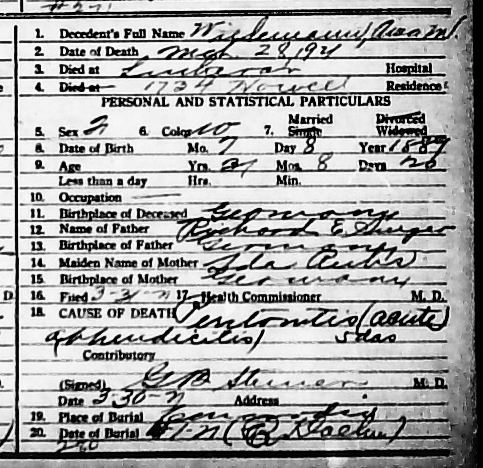 1. Decedent's Full Name Wiedemann, M.
2. Date of Death Mch 28, 1921
3. Died at Lutheran Hospital
4. Died at 1724 Howell Residence
PERSONAL AND STATISTICAL PARTICULARS
5. Sex 6. Color W 7. Married Single Divorced Widowed
8. Date of Birth Mo. 7 Day 8 Year 1889
9. Age Yrs. 31 Mos. 8 Days 20
Less than a day Hrs. Min.
10. Occupation
11. Birthplace of Deceased Germany
12. Name of Father Richard E.
13. Birthplace of Father Germany
14. Maiden Name of Mother Ida
15. Birthplace of Mother Germany
16. Filed 3-31-21 17. Health Commissioner M. D.
18. CAUSE OF DEATH Peritonitis (acute)
appendicitis) 5 das
Contributory
(Signed) G B M. D.
Date 3-30-21 Address
19. Place of Burial
20. Date of Burial 4-1-21
D.